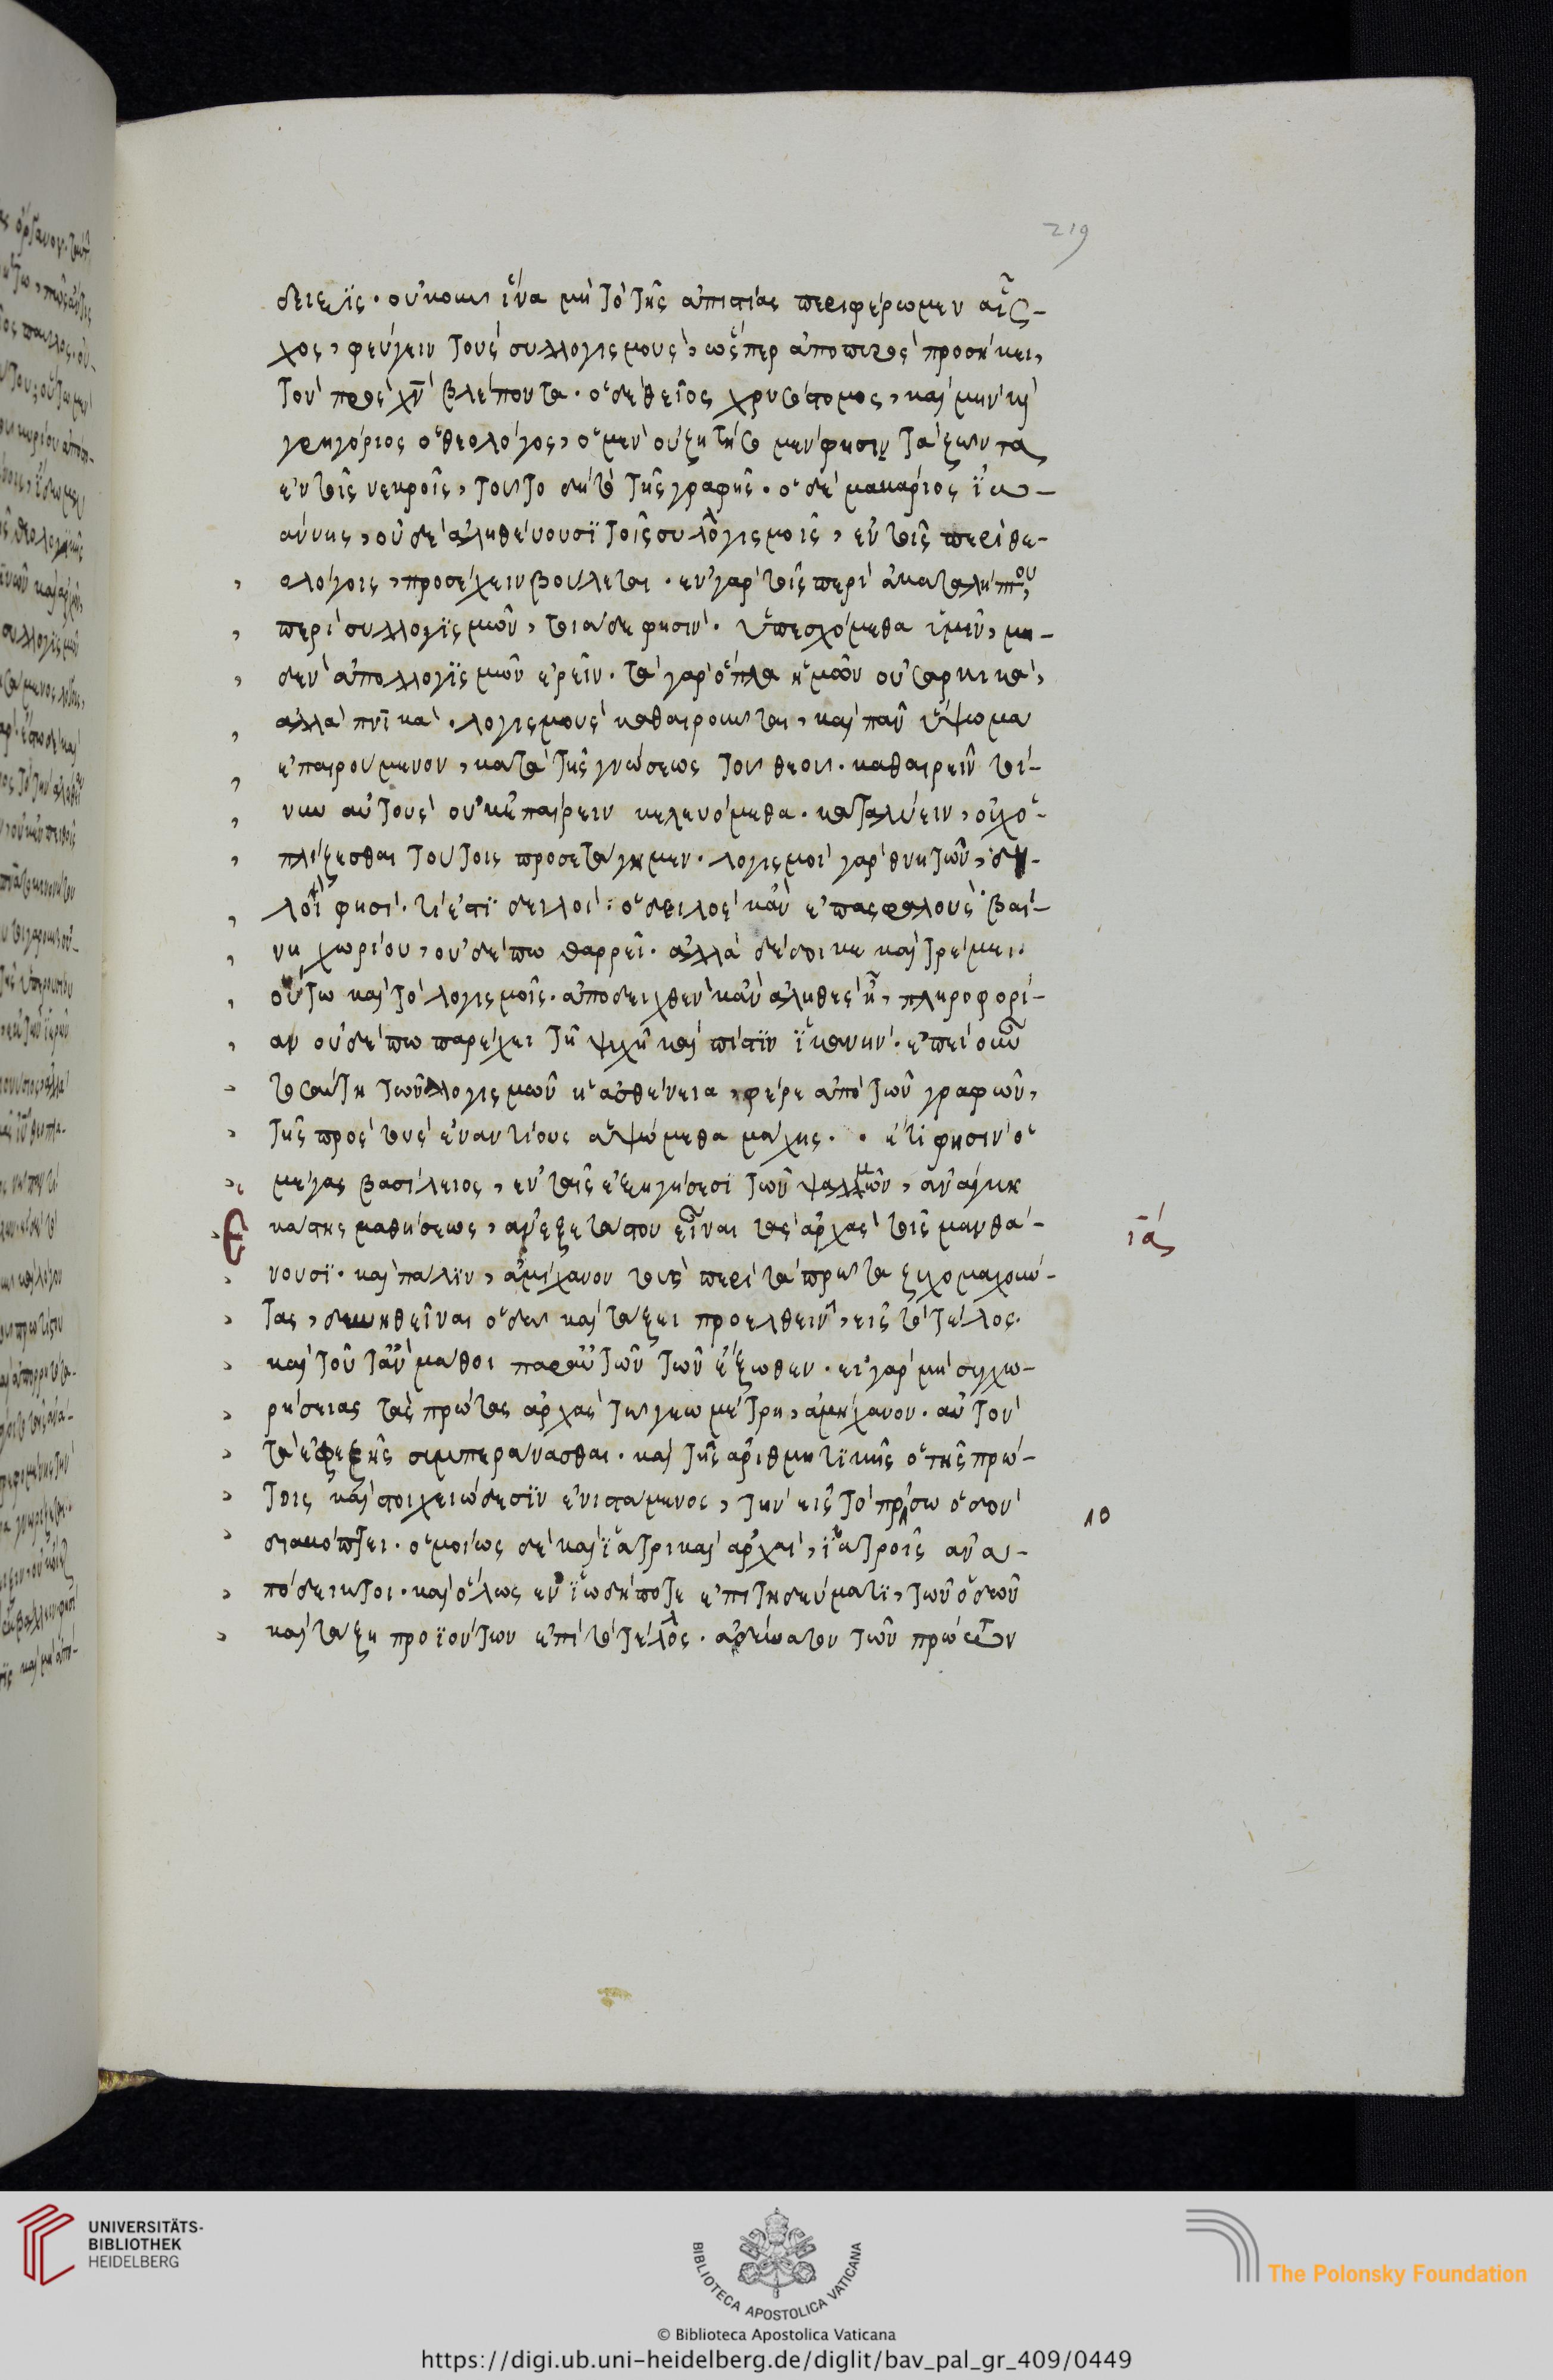 219
δειξις. οὔκουν ἵνα μὴ τὸ τῆς ἀπιστίας περιφέρωμεν αἶσ-
χος, φεύγειν τοὺς συλλογισμούς, ὥσπερ ἀποπτους προσήκει,
τὸν πρὸς χν βλέποντα. ὁ δὲ θεῖος χρυσόστομος, καὶ μὴν κ
γρηγόριος ὁ θεολόγος, ὁ μὲν οὐ ζητήσομεν φησιν τὰ ζῶντα
ἐν τοῖς νεκροῖς, τοῦτο δὴ τὸ τῆς γραφῆς. ὁ δὲ μακάριος ἰω-
άννης, οὐδὲ ἀληθεύουσι τοῖς συλλογισμοῖς, ἐν τοῖς περὶ θε-
ολόγοις, προσέχειν βούλεται. ἐν γὰρ τοῖς περὶ ἀκαταλήπτου
περὶ συλλογισμῶν, τοιάδε φησιν. ὑπεσχόμεθα ὑμῖν, μη-
δὲν ἀπολλογισμῶν ἐρεῖν. τὰ γὰρ ὅπλα ἡμῶν οὐ σαρκικά,
ἀλλὰ πνικά. λογισμοὺς καθαιροῦνται, καὶ πᾶν ὕψωμα
ἐπαιρούμενον, κατὰ τῆς γνώσεως τοῦ θεοῦ. καθαιρεῖν τοί-
νυν αὐτοὺς οὐκ ἐπαίρειν κελευόμεθα. καταλύειν, οὐχ ὁ-
πλίζεσθαι τούτοις προσετάγημεν. λογισμοὶ γὰρ θνητῶν, δει-
λοί φησί. τί ἐστι δειλοί; ὁ δειλὸς κἂν ἐπ ἀσφαλοῦς βαί-
νη χωρίου, οὐδέπω θαρρεῖ. ἀλλὰ δέδοικε καὶ τρέμει.
οὕτω καὶ τὸ λογισμοῖς. ἀποδειχθὲν κἂν ἀληθὲς ᾖ, πληροφορί-
αν οὐδέπω παρέχει τῇ ψυχῇ καὶ πίστιν ἱκανήν. ἐπεὶ οὖν
τοσαύτη τῶν λογισμῶν ἡ ἀσθένεια, φέρε ἀπὸ τῶν γραφῶν,
τῆς πρὸς τοὺς ἐναντίους ἁψώμεθα μάχης. . ἔτι φησιν ὁ
μέγας βασίλειος, ἐν ταῖς ἐξηγήσεσι τῶν ψαλμῶν, ἀνάγκη
Εκάστης μαθήσεως, ἀνεξετάστου εἶναι τὰς ἀρχὰς τοῖς μανθά-
νουσι. καὶ πάλιν, ἀμήχανον τοὺς περὶ τὰ πρῶτα ζυγομαχοῦν-
τας, δυνηθεῖναι ὁδῷ καὶ τάξει προελθεῖν, εἰς τὸ τέλος.
καὶ τοῦτ ἂν μάθοι παρ αὐτῶν τῶν ἔξωθεν. εἰ γὰρ μὴ συγχω-
ρήσειας τὰς πρώτας ἀρχὰς τῷ γεωμέτρῃ, ἀμήχανον. αὐτὸν
τὰ ἐφεξῆς συμπεράνασθαι. καὶ τῆς ἀριθμητικῆς ὁ τῆς πρώ-
τοις καὶ στοιχειώδεσιν ἐνιστάμενος, τὴν εἰς τὸ πρόσω ὁδὸν
διακόπτει. ὁμοίως δὲ καὶ ἰατρικαὶ ἀρχαί, ἰατροῖς ἀνα-
πόδεικτοι. καὶ ὅλως ἐν ᾧ δήποτε ἐπιτηδεύματι, τῶν ὁδῷ
καὶ τάξη προϊόντων ἐπὶ τὸ τέλος. ἀδύνατον τῶν πρώτων
ιά
10
UNIVERSITÄTS-
BIBLIOTHEK
HEIDELBERG
BIBLIOTECA APOSTOLICA VATICANA
The Polonsky Foundation
© Biblioteca Apostolica Vaticana
https://digi.ub.uni-heidelberg.de/diglit/bav_pal_gr_409/0449